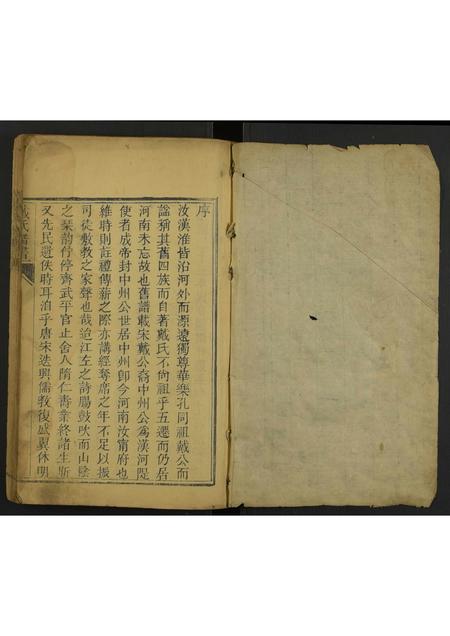 序
汝漢淮皆沿河外而源遠獨尊華樂孔同祖戴公而
謚稱其舊四族而自著戴氏不尚祖乎五遷而仍居
河南未忘故也舊譜載宋戴公裔中州公為漢河隄
使者成帝封中州公世居中州卽今河南汝甯府也
維時則註禮傳薪之際亦講經奪席之年不足以振
司徒敷教之家聲也哉迨江左之詩腸鼓吹而山陰
之琹韵佇停齊武平官止舍人隋仁壽業終諸生斯
又先民遺佚時耳洎乎唐宋迭興儒教復盛翼休明
戴氏譜書